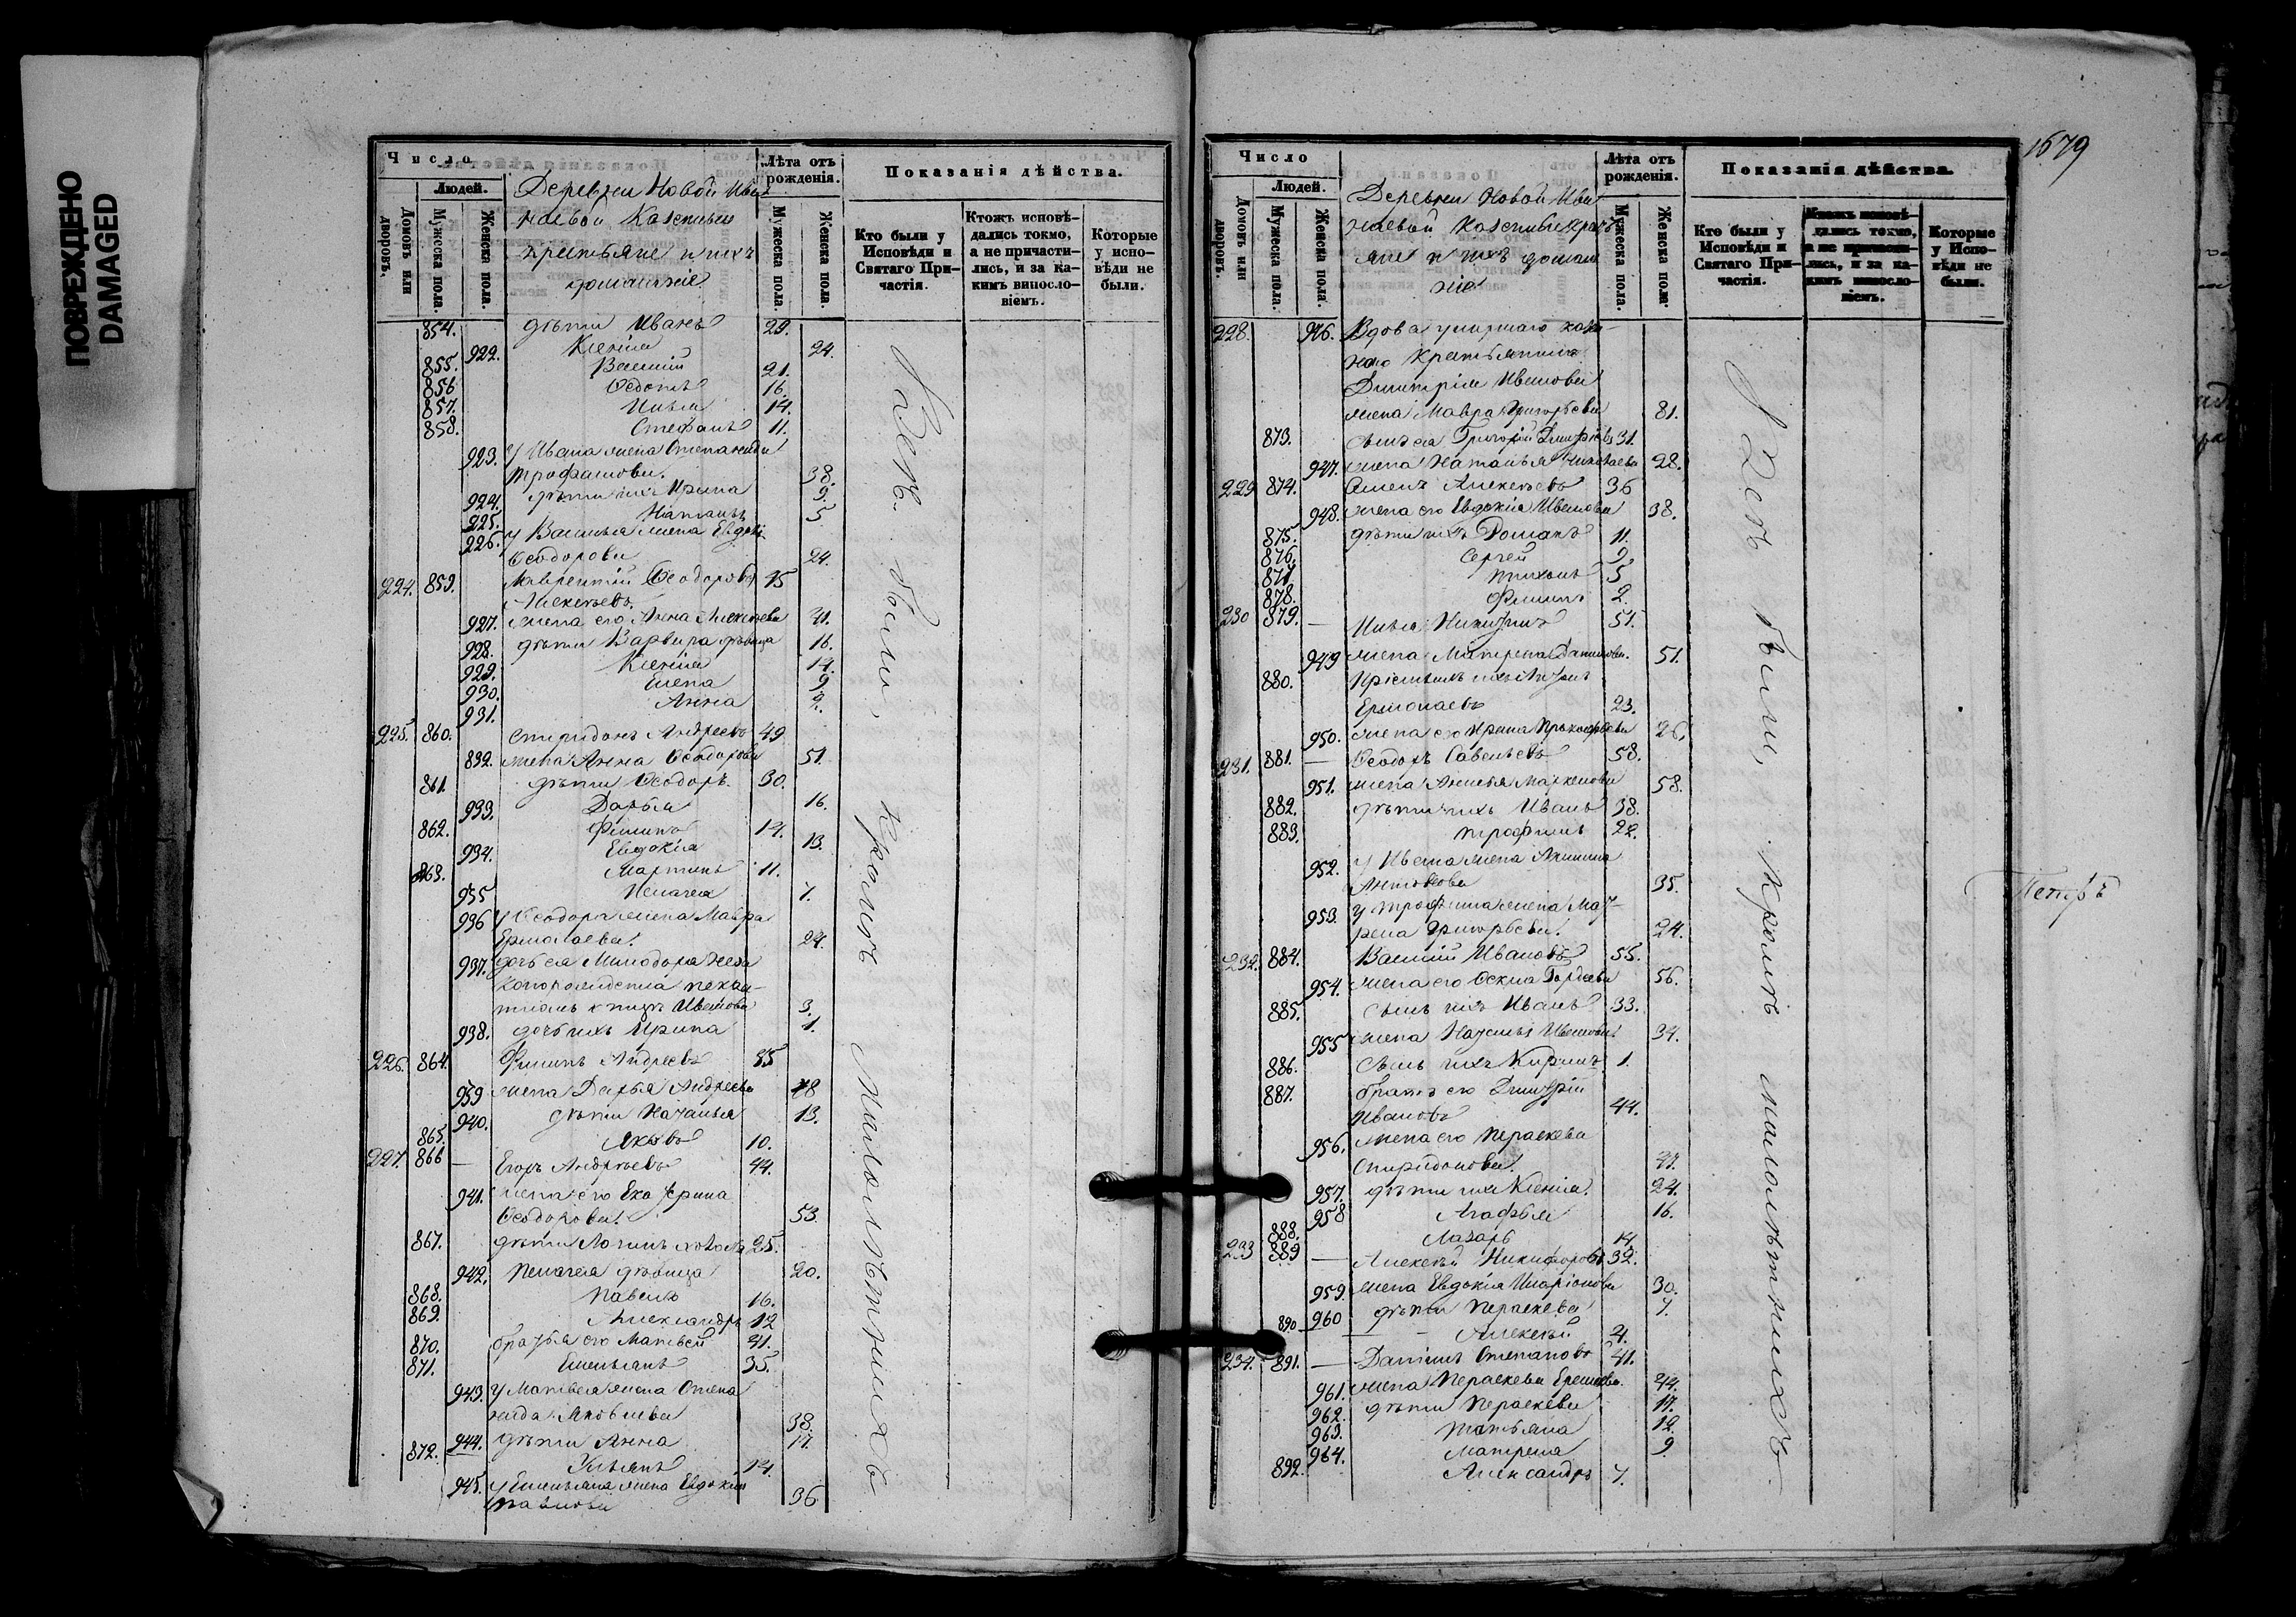 ПОВРЕЖДЕНО
DAMAGED
Число
Людей.
Домовъ или дворовъ.
Мужеска пола.
Женска пола.
Деревни Новой Ива
наевой Казенныи
крестьяне и ихъ
домашніе
Лѣта отъ рожденія.
Мужеска пола.
Женска пола.
Показанія дѣйства.
Кто были у Исповѣди и Святаго При-частія.
Ктожъ исповѣ-дались токмо, а не причасти-лись, и за ка-кимъ винословіемъ.
Которые у испо-вѣди не были.
854. дѣти Иванъ 29.
922. Ксенія 24.
855. Василій 21.
856 Ѳедотъ 16.
857. Илья 14.
858. Стефанъ 11.
923. У Ивана жена Степанида
Трофимова. 38.
924. дѣти ихъ Ирина 9.
925. Наталья 5
926. У Василья жена Евдокі
Ѳеодорова 24.
224. 859. Лаврентій Ѳеодоровъ
Алексѣевъ.
927. жена его Анна Алексѣева 41.
928. дѣти Варвара дѣвица 16.
929. Ксенія 14.
930. Елена 9
931. Анна 2.
225. 860. Спиридонъ Андреевъ 49
932. жена Анна Ѳеодорова 51.
861. дѣти Ѳеодоръ. 30.
933. Дарья 16.
862. Филипъ 14.
934. Евдокія 13.
863. Мартинъ 11.
935 Пелагея 7.
936 У Ѳеодора жена Мавра
Ермолаева. 24.
937. дочь ея Минодора
Иванова 3.
938. дочь ихъ Ирина 1.
226. 864. Филипъ Андреевъ
939 жена Дарья Андреева 48
940. дѣти Наталья 13.
865. Яковъ 10.
227. 866 — Егоръ Андреевъ 44.
941. жена его Екатерина
Ѳеодорова. 53.
867. дѣти Логинъ 25.
942. Пелагея дѣвица 20.
868. Павелъ 16.
869. Александръ 12
870. братья его Матвей 41.
871. Емельянъ 35.
943. У Матвея жена Степа
нида Яковлева 38.
944. дѣти Анна 17.
872. Ульянъ 14.
945. У Емельяна жена Евдокія
Павлова 36.
Всѣ были, кромѣ малолѣтнихъ
1679
Число
Людей.
Домовъ или дворовъ.
Мужеска пола.
Женска пола.
Деревни Новой Ива
наевой Казенные крест
яне и ихъ домаш
ніе
Лѣта отъ рожденія.
Мужеска пола.
Женска пола.
Показанія дѣйства.
Кто были у Исповѣди и Святаго При-частія.
Ктожъ исповѣ-дались токмо, а не причасти-лись, и за ка-кимъ винословіемъ.
Которые у Испо-вѣди не были.
228. 946. Вдова умершаго казен-
наго крестьянина
Димитрія Иванова
жена Мавра Григорьева 81.
873. сынъ ея Григорій Димитріевъ 31.
947. жена Наталья Николаева 28.
229 874. Семенъ Алексѣевъ 36
948. жена его Евдокія Иванова 38.
875. дѣти ихъ Романъ 11.
876. Сергей 9
877. Тихонъ 5
878. Филипъ 2.
230 879. — Илья Никитинъ 51.
949 жена Матрена Данилова. 51.
880. Пріемышъ ихъ
Ермолаевъ 23.
950. жена его Ирина Прокофьева 26.
231. 881. — Ѳеодоръ Савельевъ 58.
951. жена Аксинья Маркелова 58.
882. дѣти ихъ Иванъ 38.
883. Трофимъ 22.
952. У Ивана жена Акилина
Антонова 35.
953. У Трофима жена Мат-
рена Григорьева. 24.
232. 884. Василій Ивановъ 55.
954. жена его Ѳекла Гордеева 56.
885. сынъ ихъ Иванъ 33.
955 жена Наталья Иванова. 34.
886. Сынъ ихъ Кирилъ 1.
887. братъ его Димитрій
Ивановъ 44.
956. жена его Параскева
Спиридонова.
957. дѣти ихъ Ксенія. 24.
958 Агафья 16.
888. Лазарь 14.
233 889 — Алексѣй Никифоровъ 32.
959. жена Евдокія Иларіонова 30.
960 дѣти Параскева 7.
890 Алексѣй 4.
234. 891. — Даніилъ Степановъ 41.
961. жена Параскева 44.
962. дѣти Параскева 17.
963. Татьяна 12.
964. Матрена 9
892. Александръ 7.
Всѣ были, кромѣ малолѣтнихъ.
Петръ